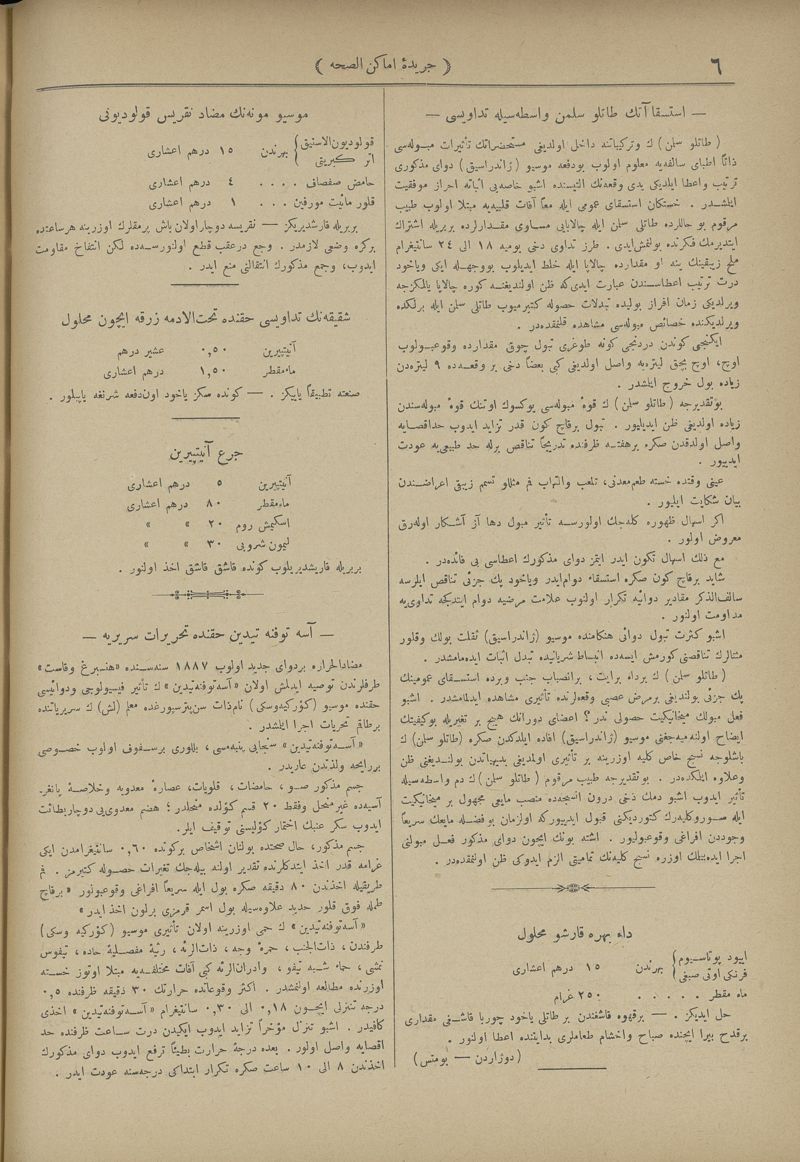 ٦
﴿ جريدۀ اماكن الصحه ﴾
— استسقاآتك طاتلو سلمن واسطه‌سيله تداويسى —
( طاتلو سلن ) ك وتركياتنه داخل اولديغى مستحضراتك تأثيرات مبوله‌سى
ذاتاً اطباى سالفه‌يه معلوم اولوب بودفعه موسيو (ژاندراسيق) دواى مذكورى
ترتيب واعطا ايلديكى يدى وقعه‌نك التيسنده اشبو خاصه‌يى اثباته احراز موفقيت
ايلمشدر . خستكان استسقاى عمومى ايله معاً آفات قلبيه‌يه مبتلا اولوب طبيب
مرقوم بو حاللرده طاتلى سلن ايله چالاپايى مساوى مقدارلرده بربريله اشتراك
ايتديرمك فكرنده بولنمش‌ايدى . طرز تداوى دخى يوميه ١٨ الى ٢٤ سانتيغرام
ملح زيبقينك ينه او مقدارده چالاپا ايله خلط ايديلوب بووجهله ايكى وياخود
درت ترتيب اعطاسندن عبارت ايدى‌كه ظن اولنديغنه كوره چالاپا يالكزجه
ويرلديكى زمان افراز بولده تبدلات حصوله كتيرميوب طاتلى سلن ايله برلكده
ويرلديكنده خصائص مبوله‌سى مشاهده قلنمقده‌در .
ايكنجى كوندن دردنجى كونه طوغرى تبول چوق مقدارده وقوعبولوب
اوچ، اوچ بچق ليتره‌يه واصل اولديغى كبى بعضاً دخى بر وقعه‌ده ٩ ليتره‌دن
زياده بول خروج ايلمشدر .
بوتقديرجه ( طاتلو سلن ) ك قوۀ مبوله‌سى يوكسوك اوتنك قوۀ مبوله‌سندن
زياده اولديغى ظن ايديليور . تبول برقاچ كون قدر تزايد ايدوب حداقصايه
واصل اولدقدن صكره برهفته ظرفنده تدريجاً تناقص برله حد طبيعى‌يه عودت
ايدييور .
عينى وقتده خسته طعم‌معدنى، تلعب والتهاب فم مثللو تسمم زيبقى اعراضندن
بيان شكايت ايليور .
اكر اسهال ظهوره كله‌جك اولورسه تأثير مبول دها آز آشكار اوله‌رق
معروض اولور .
مع ذلك اسهال تكون ايدر ايتمز دواى مذكورك اعطاسى بى فائده‌در .
شايد برقاچ كون صكره استسقاء دوام‌ايدر وياخود پك جزئى تناقص ايلرسه
سالف‌الذكر مقادير دوائيه تكرار اولنوب علامت مرضيه دوام ايتدكجه تداوى‌يه
مداومت اولنور .
اشبو كثرت تبول دوائى هنكامنده موسيو (ژاندراسيق) ثقلت بولك وقلور
مثنالرك تناقصنى كورمش ايسه‌ده انبساط شريانيده تبدل اثبات ايده‌مامشدر .
( طاتلى سلن ) ك برداء برايت، برانصباب جنب وبرده استسقاى عمومينك
پك جزئى بولنديغى برمرض عصبى وقعه‌لرنده تأثيرى مشاهده ايدلمامشدر . اشبو
فعل مبولك ميخانيكيت حصولى ندر؟ اعضاى دورانك هيچ بر تغيريله بوكيفيتك
ايضاح اولنه‌ميه‌جغنى موسيو (ژاندراسيق) افاده ايلدكدن صكره (طاتلى سلن) ك
باشلوجه نسيج خاص كليه اوزرينه بر تأثيرى اولديغنى بديهياتدن بولنديغنى ظن
وعلاوه ايلمكده‌در . بوتقديرجه طبيب مرقوم ( طاتلو سلن ) ك دم واسطه‌سيله
تأثير ايدوب اشبو دمك دخى درون انسجه‌ده منصب مايعى مجهول بر ميخانيكيت
ايله سوروكليه‌رك كتورديكنى قبول ايدييوركه اولزمان بوفضله مايعك سريعاً
وجوددن افراغى وقوعبوليور . اشته بونك ايچون دواى مذكور فعل مبولنى
اجرا ايده‌بيلمك اوزره نسيج كليه‌نك تماميتى الزم ايدوكى ظن اولنمقده‌در .
داء بهره قارشو محلول
ايود پوتاسيوم
فرنكى اوتى صبغى
بهرندن ١٥ درهم اعشارى
ماء مقطر . . . . . ٢٥٠ غرام
حل ايديكز . — برقهوه قاشغندن بر طاتلى ياخود چوربا قاشغنى مقدارى
برقدح بيرا ايچنده صباح واخشام طعاملرى بدايتنده اعطا اولنور .
(دوژاردن — بومتس)
موسيو مونه‌نك مضاد نقريس قولوديونى
قولوديون‌الاستيق
اتر كبريتى
بهرندن ١٥ درهم اعشارى
حامض صفصاف . . . . ٤ درهم اعشارى
قلور مائيت مورفين . . . ١ درهم اعشارى
بربريله قارشديريكز — نقريسه دوچار اولان باش برمقلرك اوزرينه هرساعتده
بركره وضعى لازمدر . وجع درعقب قطع اولنورسه‌ده لكن انتفاخ مقاومت
ايدوب، وجع مذكورك انتقالنى منع ايدر .
شقيقه‌نك تداويسى حقنده تحت‌الادمه زرقه ايچون محلول
آنتيپيرين ٠,٥٠ عشير درهم
ماءمقطر ١,٥٠ درهم اعشارى
صنعته تطبيقاً ياپيكز . — كونده سكز ياخود اون‌دفعه شرنغه ياپيلور .
جرع آنتيپيرين
آنتيپيرين ٥ درهم اعشارى
ماءمقطر ٨٠ درهم اعشارى
اسكيمش روم ٢٠ » »
ليمون شروبى ٣٠ » »
بربريله قاريشديريلوب كونده قاشق قاشق اخذ اولنور .
— آسه توفنه تيدين حقنده تحريرات سريريه —
مضادالحراره بردواى جديد اولوب ١٨٨٧ سنه‌سنده «هنسبرغ وفاست»
طرفلرندن توصيه ايدلمش اولان «آسه‌توفنه‌تيدين» ك تأثير فيسيولوجى ودوائيسى
حقنده موسيو (كؤركيه‌وسكى) نام‌ذات سن‌پترسبورغده معلم (لش) ك سريرياتنده
برطاقم تحريات اجرا ايلمشدر .
«آسه‌توفنه‌تيدين» سنجابى پنبه‌مسى، بللورى برسفوف اولوب خصوصى
بررايحه ولذتدن عاريدر .
جسم مذكور صو ، حامضات ، قلويات، عصارۀ معدويه وخلاصۀ پانغر-
آسيه‌ده غيرمنحل وفقط ٢٠ قسم كؤلده منحلدر؛ هضم معدوى‌يى دوچاربطائت
ايدوب سكر عنبك اختمار كؤليسنى توقيف ايلر.
جسم مذكور، حال صحتده بولنان اشخاص بركونده ٠,٦٠ سانتيغرامدن ايكى
غرامه قدر اخذ ايتدكلرنده تقدير اولنه بيله‌جك تغيرات حصوله كتيرمز . فم
طريقيله اخذندن ٨٠ دقيقه صكره بول ايله سريعاً افراغى وقوعبولنور «برقاچ
طمله فوق قلور حديد علاوه‌سيله بول اسمر قرمزى برلون اخذ ايدر»
«آسه‌توفنه‌تيدين» ك حمى اوزرينه اولان تأثيرى موسيو (كؤركيه وسكى)
طرفندن ، ذات‌الجنب ، حمرۀ وجه ، ذات‌الرئه ، رثيۀ مفصليۀ حاده ، تيفوس
نمشى ، حماء شبه تيفو ، وادران‌الرئه كبى آفات مختلفه‌يه مبتلا اوتوز خسته
اوزرنده مطالعه اولنمشدر . اكثر وقوعاتده حرارتك ٣٠ دقيقه ظرفنده ٠,٥
درجه تنزلى ايچون ٠,١٨ الى ٠,٣٠ سانتيغرام «آسه‌توفنه‌تيدين» اخذى
كافيدر . اشبو تنزل مؤخراً تزايد ايدوب ايكيدن درت ساعت ظرفنده حد
اقصايه واصل اولور . بعده درجۀ حرارت بطيئاً ترفع ايدوب دواى مذكورك
اخذندن ٨ الى ١٠ ساعت صكره تكرار ابتداكى درجه‌سنه عودت ايدر .